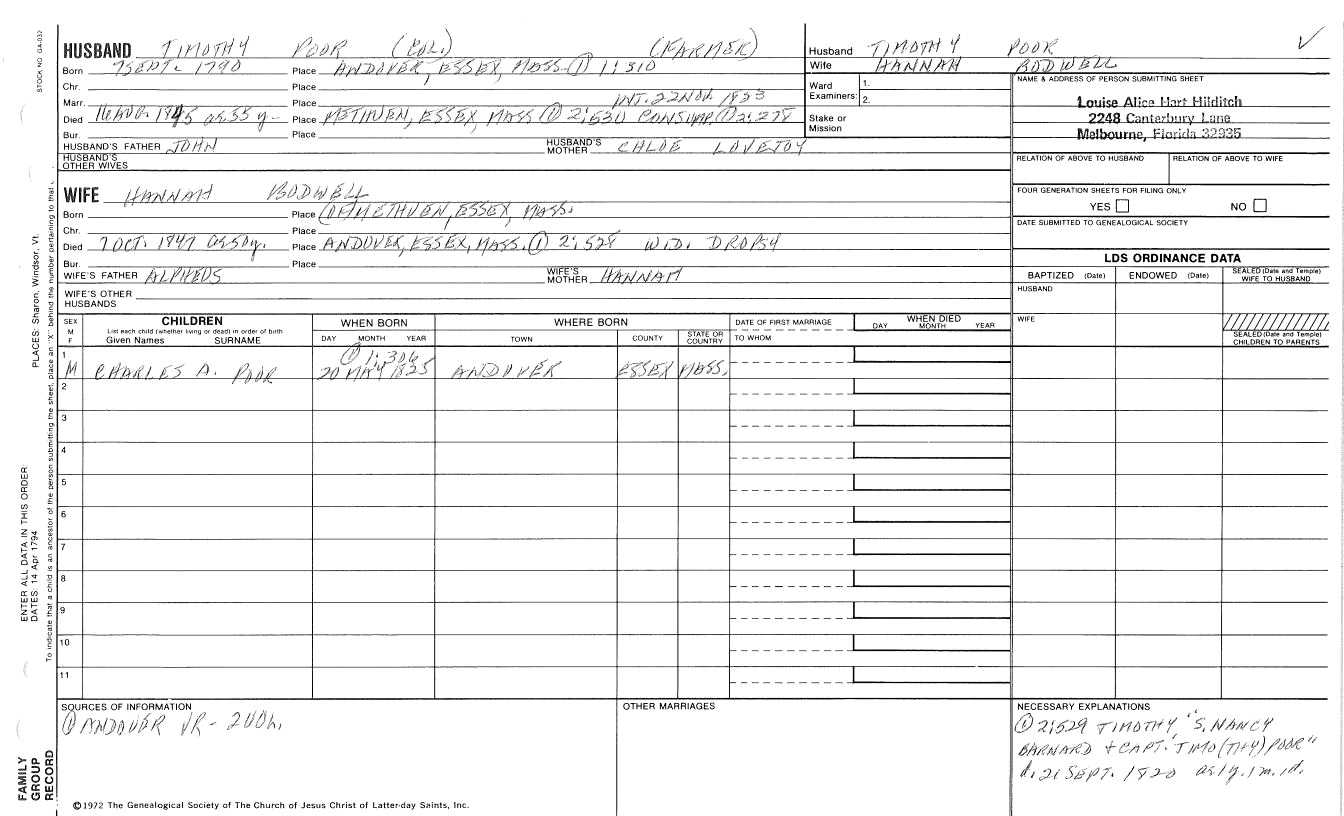 STOCK NO. GA-032
HUSBAND TIMOTHY POOR (COL.) (FARMER)
Born 7 SEPT. 1790 Place ANDOVER, ESSEX, MASS. ① 1:310
Chr. Place
Marr. Place INT. 22 NOV. 1823
Died 16 AUG. 1845 ag. 55 y. Place METHUEN, ESSEX, MASS ① 2:530 CONSUMP. ① 2:278
Bur. Place
HUSBAND'S FATHER JOHN HUSBAND'S MOTHER CHLOE LOVEJOY
HUSBAND'S OTHER WIVES
Husband TIMOTHY POOR
Wife HANNAH BODWELL
Ward Examiners: 1.
2.
Stake or Mission
NAME & ADDRESS OF PERSON SUBMITTING SHEET
Louise Alice Hart Hilditch
2248 Canterbury Lane
Melbourne, Florida 32935
RELATION OF ABOVE TO HUSBAND RELATION OF ABOVE TO WIFE
FOUR GENERATION SHEETS FOR FILING ONLY
YES NO
DATE SUBMITTED TO GENEALOGICAL SOCIETY
WIFE HANNAH BODWELL
Born Place (OF) METHUEN, ESSEX, MASS.
Chr. Place
Died 7 OCT. 1847 ag. 50 y. Place ANDOVER, ESSEX, MASS. ① 2:528 WID. DROPSY
Bur. Place
WIFE'S FATHER ALPHEUS WIFE'S MOTHER HANNAH
WIFE'S OTHER HUSBANDS
LDS ORDINANCE DATA
BAPTIZED (Date) ENDOWED (Date) SEALED (Date and Temple) WIFE TO HUSBAND
HUSBAND
WIFE
SEALED (Date and Temple) CHILDREN TO PARENTS
SEX M F CHILDREN WHEN BORN WHERE BORN DATE OF FIRST MARRIAGE WHEN DIED
List each child (whether living or dead) in order of birth
Given Names SURNAME DAY MONTH YEAR TOWN COUNTY STATE OR COUNTRY TO WHOM DAY MONTH YEAR
1 ① 1:306
M CHARLES A. POOR 20 MAY 1825 ANDOVER ESSEX MASS.
2
3
4
5
6
7
8
9
10
11
SOURCES OF INFORMATION
① ANDOVER VR - 2 VOL.
OTHER MARRIAGES
NECESSARY EXPLANATIONS
① 2:529 TIMOTHY "S. NANCY
BARNARD + CAPT. TIMO(THY) POOR"
d. 21 SEPT. 1820 ag. 1 y. 1 m. 1 d.
©1972 The Genealogical Society of The Church of Jesus Christ of Latter-day Saints, Inc.
FAMILY GROUP RECORD
ENTER ALL DATA IN THIS ORDER
DATES: 14 Apr 1794
PLACES: Sharon, Windsor, Vt.
To indicate that a child is an ancestor of the person submitting the sheet, place an "X" behind the number pertaining to that